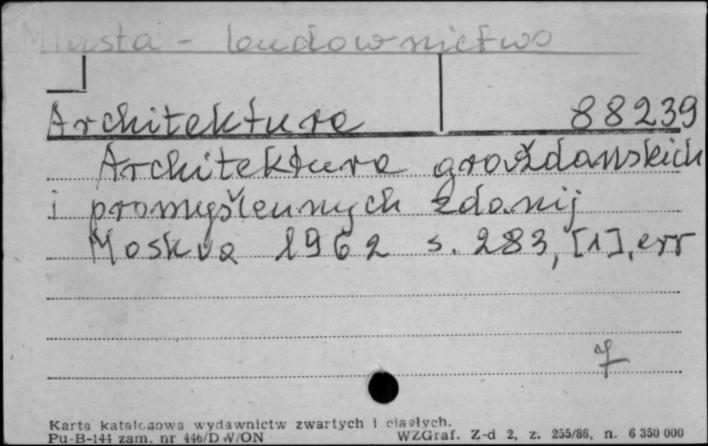 Miasta - budownictwo
Architektura 88239
Architektura graždanskich
i promyšlennych zdanij
Moskva 1962 s. 283, [1], err
7
Karta katalogowa wydawnictw zwartych i ciągłych.
Pu-B-144 zam. nr 446/D W/ON WZGraf. Z-d 2, z. 255/86, n. 6 350 000